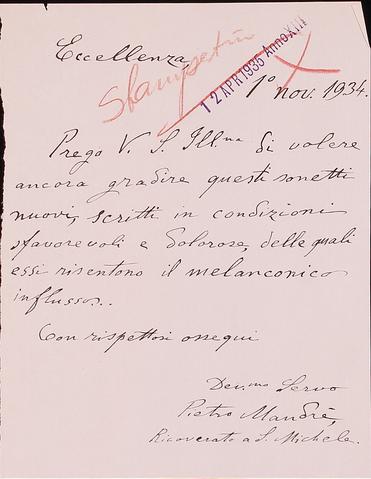 Eccellenza,
Stampetin
12 APR 1935 Anno XIII
1º nov. 1934.
Prego V. S. Ill.ma di volere
ancora gradire questi sonetti
nuovi, scritti in condizioni
sfavorevoli e dolorose, delle quali
essi risentono il melanconico
influsso..
Con rispettosi ossequi
Dev.mo Servo
Pietro Mandrè,
Ricoverato a S. Michele.